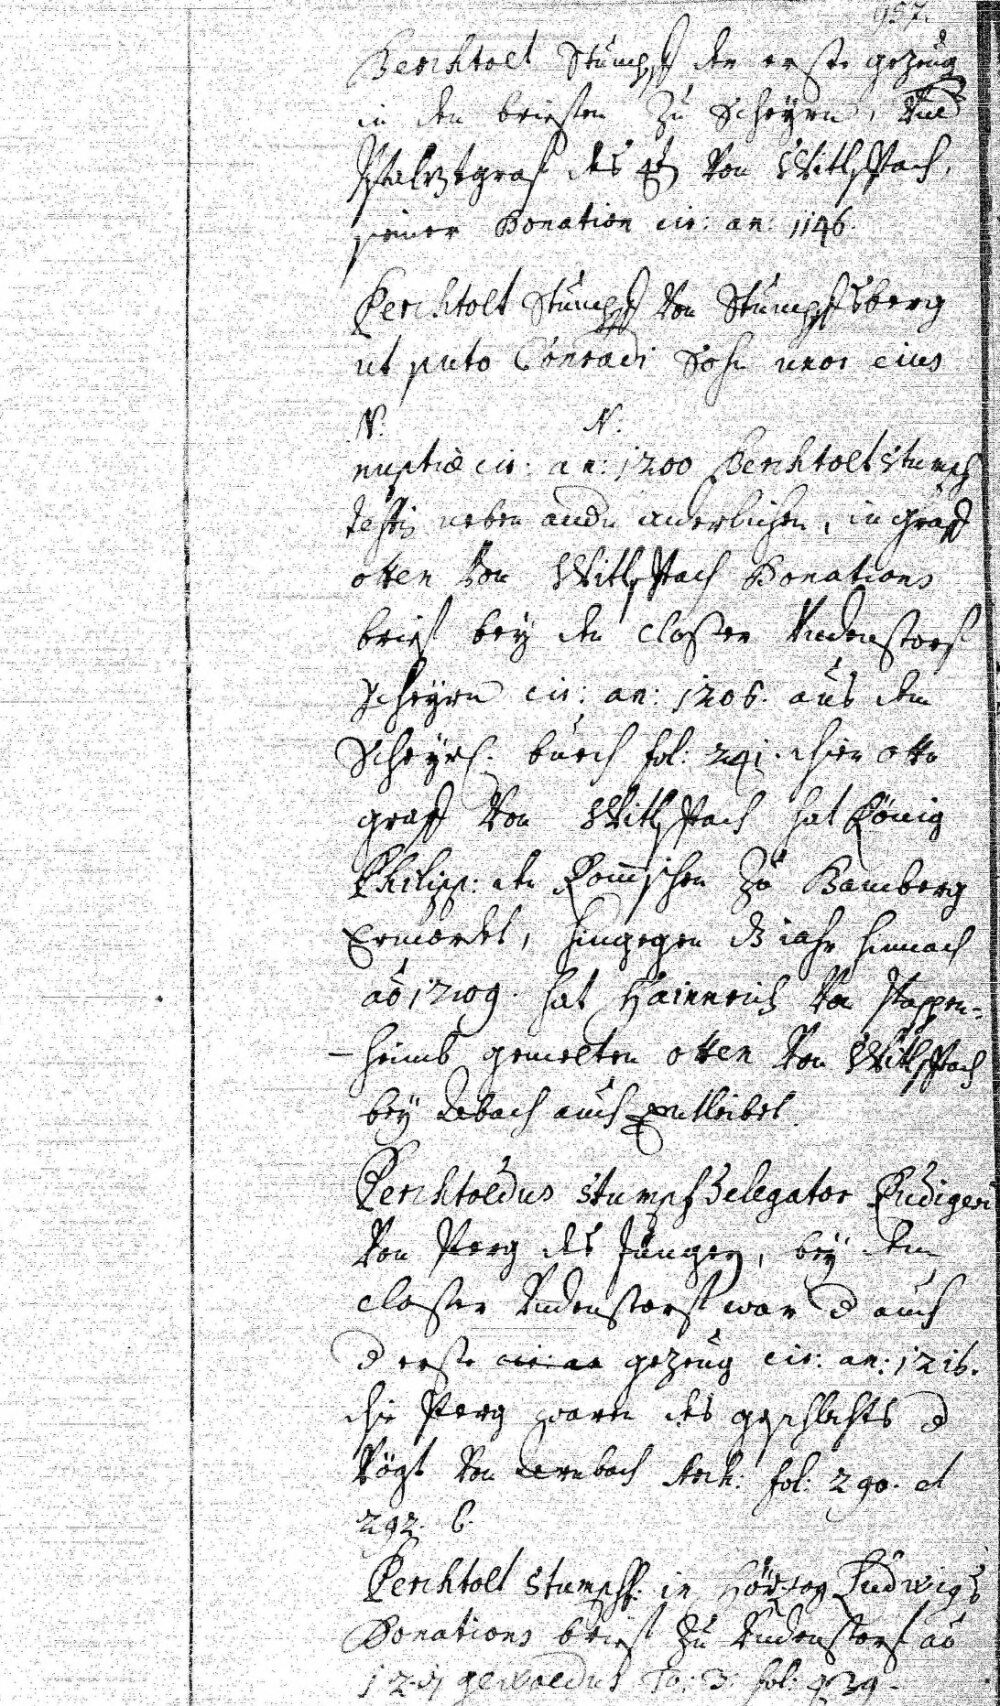 957.
Berchtolt Stumpff der erste gezeug
in den brieffen Zu Scheyrn, Und
Pfaltzgraf des Von Witlspach,
seiner Donation cir: an: 1146.
Perchtolt Stumpff Von Stumpfsberg
ut puto Conradi Sohn uxor eius
N. N.
nuptiæ cir: an: 1200 Berchtolt Stumpf
testis neben andern, in graff
otten Von Witlspach Donations
brief bey den Closter Undenstorf
Scheyrn cir: an: 1206. aus dem
Scheyrs: buech fol: 241. disen otto
graff Von Witlspach hat König
Philipp: den Römischen Zu Bamberg
Ermordet, hingegen dz iahr hernach
ao 1209. hat Hainrich Von Pappen-
-heimb gemelten otten Von Witlspach
bey Abach auch Entleibet.
Perchtoldus Stumpf Delegator Rudigeri
Von Perg des Jungen, bey dem
Closter Undenstorff war d auch
d erste cir: an gezeug cir: an: 1216.
die Perg waren des geschlechts d
Vögt Von Arnbach fol: 290. et
292. b.
Perchtolt Stumpff. in Hörzog Ludwigs
Donations brief Zu Undenstorf ao
gewoldus To: 3. fol: